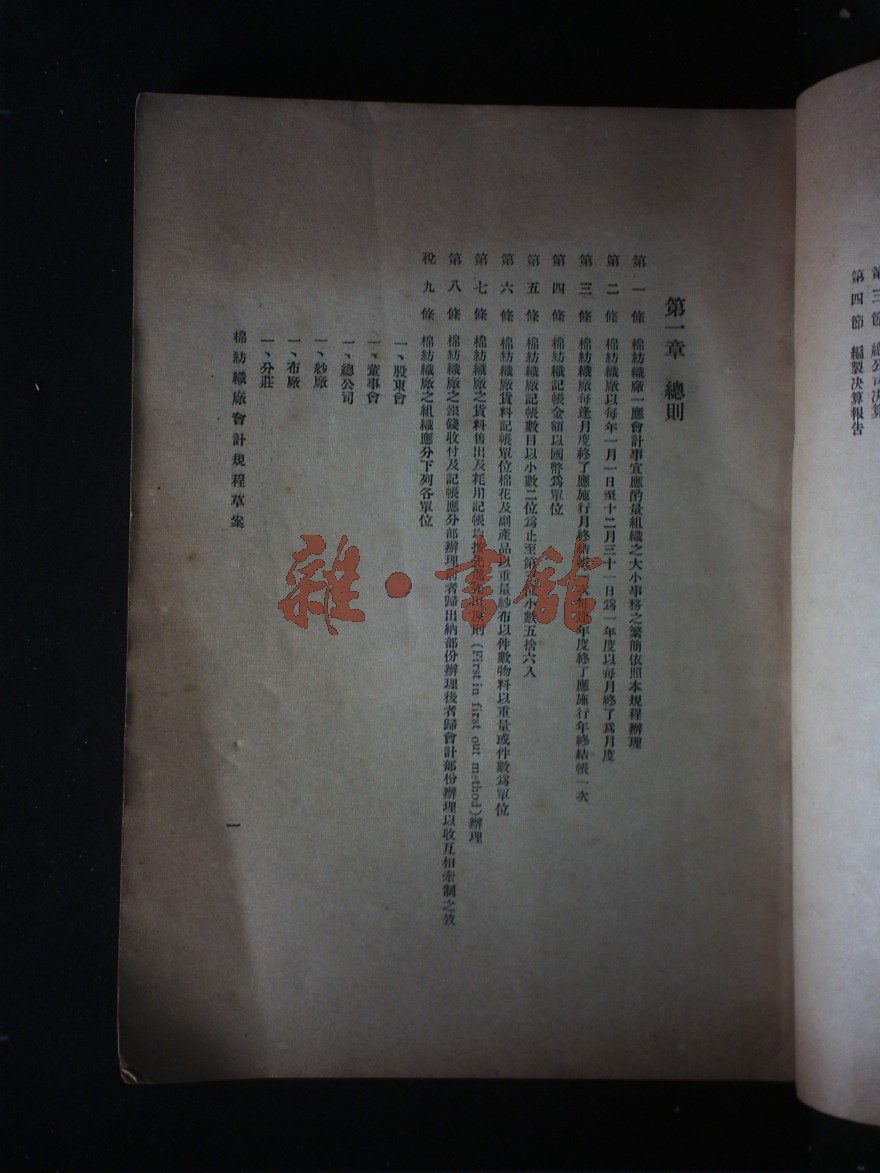 第三節 總公司決算
第四節 編製決算報告
第一章 總則
第一條 棉紡織廠一應會計事宜應酌量組織之大小事務之繁簡依照本規程辦理
第二條 棉紡織廠以每年一月一日至十二月三十一日爲一年度以每月終了爲月度
第三條 棉紡織廠每逢月度終了應施行月終結帳一次每逢年度終了應施行年終結帳一次
第四條 棉紡織記帳金額以國幣爲單位
第五條 棉紡織廠記帳數目以小數二位爲止至第三位小數五捨六入
第六條 棉紡織廠貨料記帳單位棉花及副產品以重量紗布以件數物料以重量或件數爲單位
第七條 棉紡織廠之貨料售出及耗用記帳均按先進先出原則(First in first out method)辦理
第八條 棉紡織廠之銀錢收付及記帳應分部辦理前者歸出納部份辦理後者歸會計部份辦理以收互相牽制之效
稅九條 棉紡織廠之組織應分下列各單位
一、股東會
一、董事會
一、總公司
一、紗廠
一、布廠
一、分莊
棉紡織廠會計規程草案
一
雜·書館